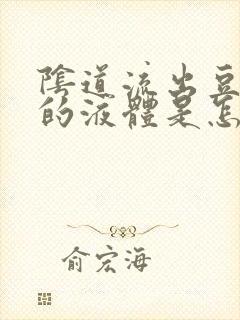 陰道流出豆
的液體是怎
俞宏海